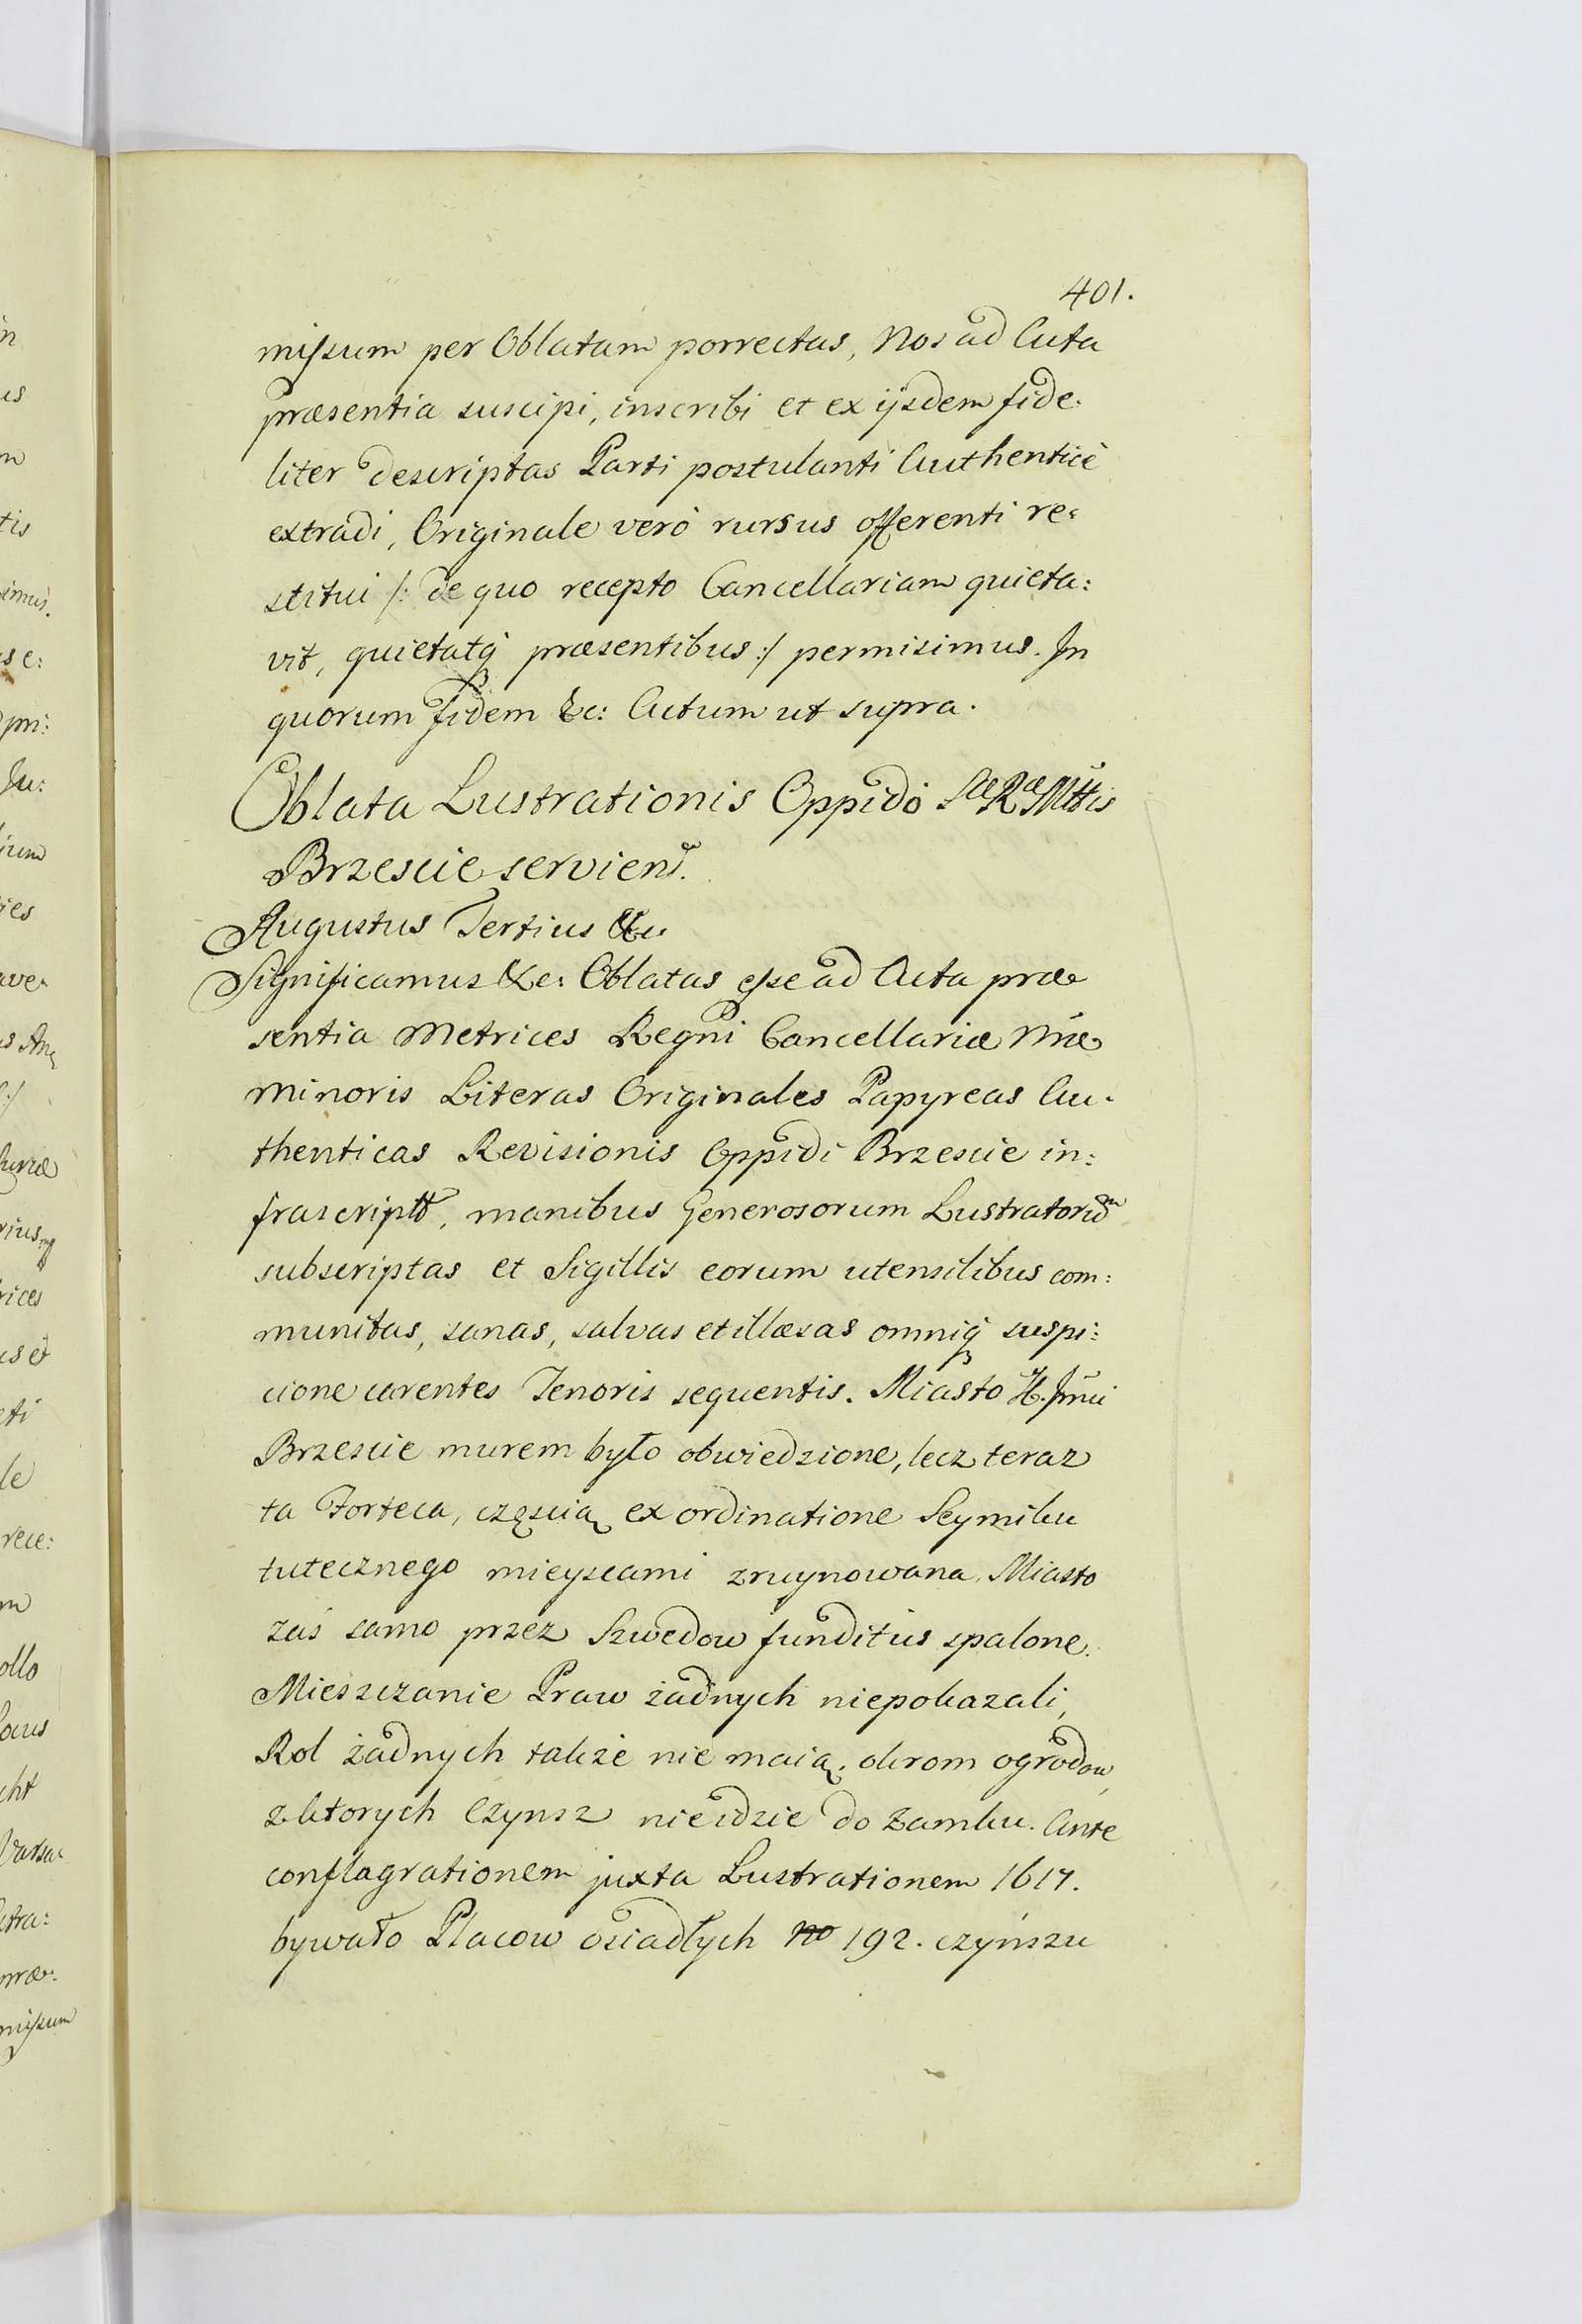 401.
missum per Oblatam porrectas, Nos ad Acta
præsentia suscipi, inscribi et ex ijsdem fide:
liter descriptas Parti postulanti Authenticè
extradi, Originale verò rursus offerenti re:
stitui /: de quo recepto Cancellariam quieta:
vit, quietatq₃ præsentibus :/ permisimus. In
quorum fidem &c: Actum ut supra.
Oblata Lustrationis Oppido Sæ Ræ Mttis
Brzescie serviend.
Augustus Tertius &c:
Significamus &c: Oblatas esse ad Acta præ
sentia Metrices Regni Cancellariæ Nr̃æ
Minoris Literas Originales Papyreas Au:
thenticas Revisionis Oppidi Brzescie in:
frascriptt, manibus Generosorum Lustratorum
subscriptas et Sigillis eorum utensilibus com:
munitas, sanas, salvas et illæsas omniq₃ suspi:
cione carentes Tenoris sequentis. Miasto
Brzescie murem było obwiedzione, lecz teraz
ta Forteca, częscią ex ordinatione Seymiku
tutecznego mieyscami zruynowana. Miasto
zaś samo przez Szwedow funditus spalone.
Mieszczanie Praw żadnych niepokazali,
Rol żadnych także nie maią, okrom ogrodow,
z ktorych Czynsz nie idzie do Zamku. Ante
conflagrationem juxta Lustrationem 1617.
bywało Placow osiadłych No 192. czynszu
in
us
m
tis
simus.
se:
pri:
Ju:
ium
ies
ave:
s An
:/
Curiæ
rius
rices
us et
eti
le
rece:
m
ollo
Locus
cht
Varsa:
xtra:
præ:
missum